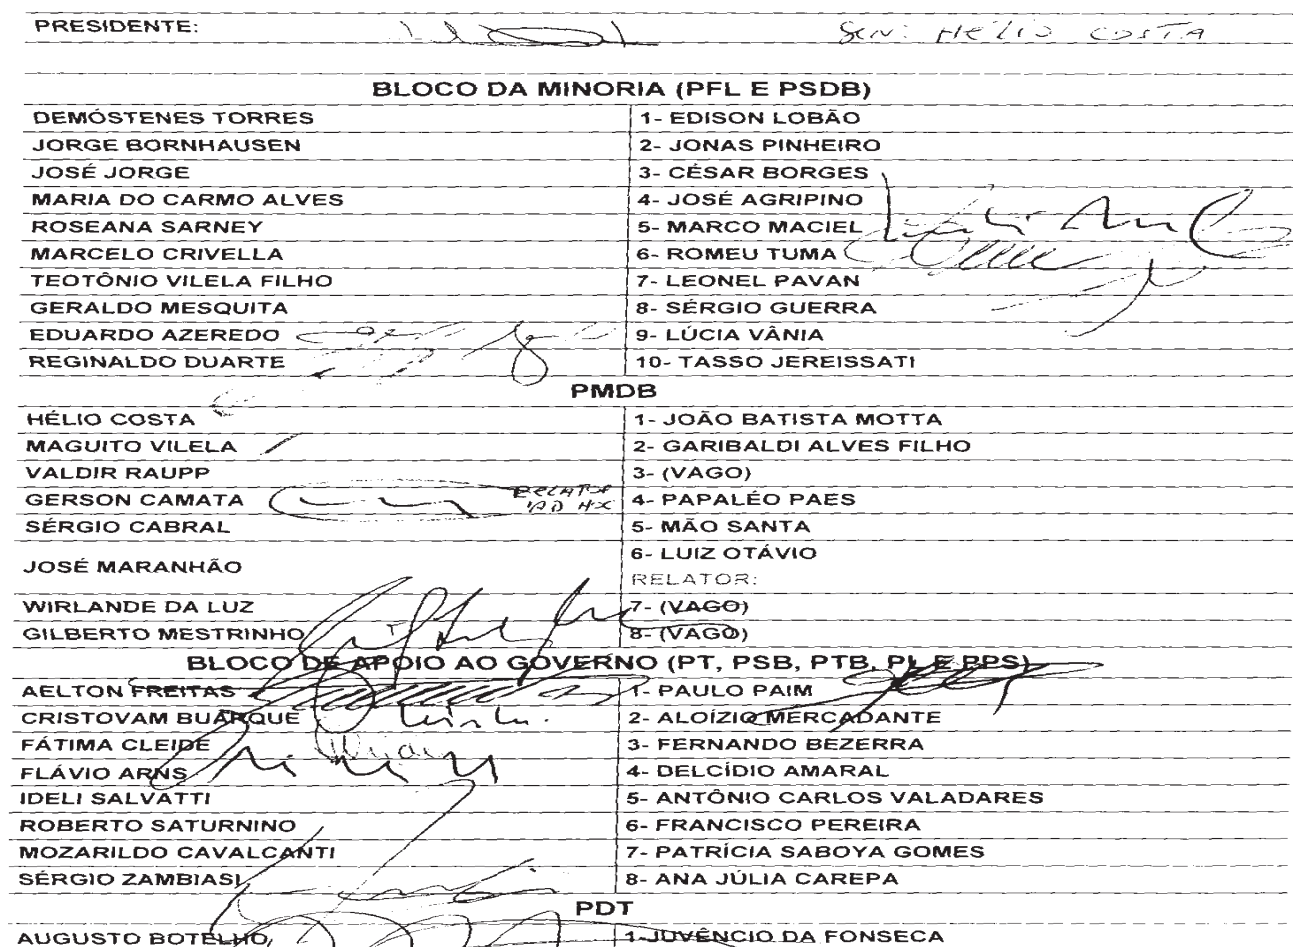 PRESIDENTE: SEN: HÉLIO COSTA
BLOCO DA MINORIA (PFL E PSDB)
DEMÓSTENES TORRES 1- EDISON LOBÃO
JORGE BORNHAUSEN 2- JONAS PINHEIRO
JOSÉ JORGE 3- CÉSAR BORGES
MARIA DO CARMO ALVES 4- JOSÉ AGRIPINO
ROSEANA SARNEY 5- MARCO MACIEL
MARCELO CRIVELLA 6- ROMEU TUMA
TEOTÔNIO VILELA FILHO 7- LEONEL PAVAN
GERALDO MESQUITA 8- SÉRGIO GUERRA
EDUARDO AZEREDO 9- LÚCIA VÂNIA
REGINALDO DUARTE 10- TASSO JEREISSATI
PMDB
HÉLIO COSTA 1- JOÃO BATISTA MOTTA
MAGUITO VILELA 2- GARIBALDI ALVES FILHO
VALDIR RAUPP 3- (VAGO)
GERSON CAMATA RELATOR 4- PAPALÉO PAES
SÉRGIO CABRAL 5- MÃO SANTA
JOSÉ MARANHÃO 6- LUIZ OTÁVIO
RELATOR:
WIRLANDE DA LUZ 7- (VAGO)
GILBERTO MESTRINHO 8- (VAGO)
BLOCO DE APOIO AO GOVERNO (PT, PSB, PTB, PL E PPS)
AELTON FREITAS 1- PAULO PAIM
CRISTOVAM BUARQUE 2- ALOÍZIO MERCADANTE
FÁTIMA CLEIDE 3- FERNANDO BEZERRA
FLÁVIO ARNS 4- DELCÍDIO AMARAL
IDELI SALVATTI 5- ANTÔNIO CARLOS VALADARES
ROBERTO SATURNINO 6- FRANCISCO PEREIRA
MOZARILDO CAVALCANTI 7- PATRÍCIA SABOYA GOMES
SÉRGIO ZAMBIASI 8- ANA JÚLIA CAREPA
PDT
AUGUSTO BOTELHO 1-JUVÊNCIO DA FONSECA